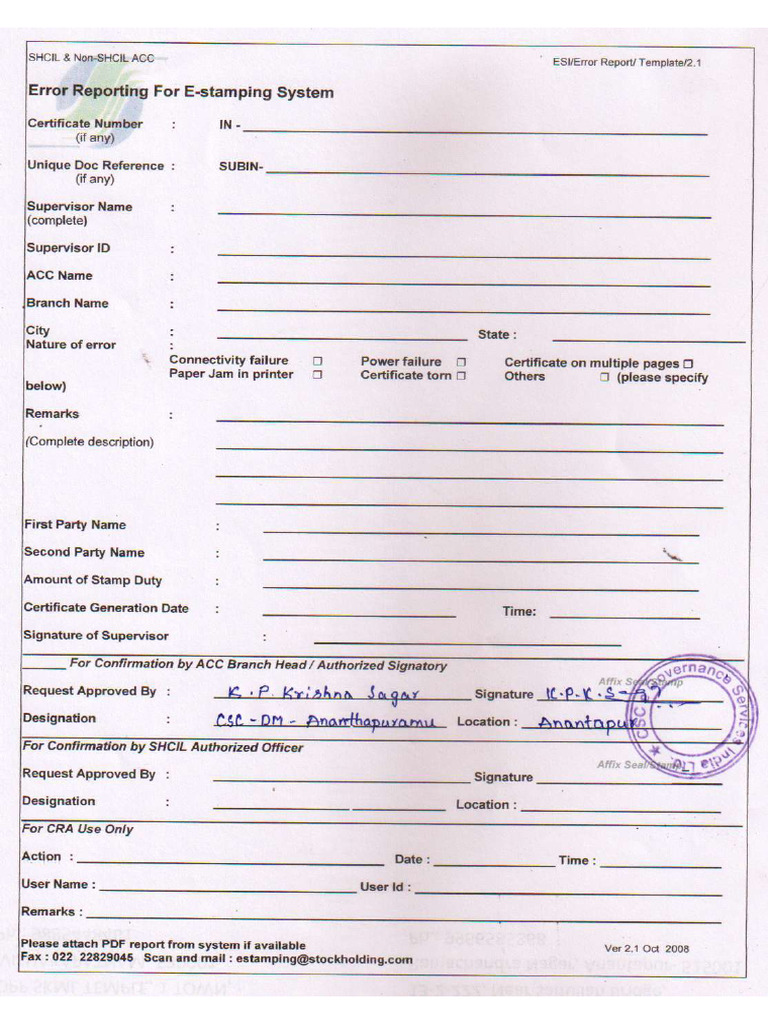 SHCIL & Non-SHCIL ACC
ESI/Error Report/ Template/2.1
Error Reporting For E-stamping System
Certificate Number : IN -
(if any)
Unique Doc Reference : SUBIN-
(if any)
Supervisor Name :
(complete)
Supervisor ID :
ACC Name :
Branch Name :
City : State :
Nature of error :
Connectivity failure Power failure Certificate on multiple pages
Paper Jam in printer Certificate torn Others (please specify
below)
Remarks :
(Complete description)
First Party Name :
Second Party Name :
Amount of Stamp Duty :
Certificate Generation Date : Time:
Signature of Supervisor :
For Confirmation by ACC Branch Head / Authorized Signatory
Affix Seal/Stamp
Request Approved By : K. P. Krishna Sagar Signature K.P.K.S
Designation : CSC - DM - Ananthapuramu Location : Anantapur
CSC e-Governance Services India Ltd.
For Confirmation by SHCIL Authorized Officer
Affix Seal/Stamp
Request Approved By : Signature
Designation : Location :
For CRA Use Only
Action : Date : Time :
User Name : User Id :
Remarks :
Please attach PDF report from system if available
Ver 2.1 Oct 2008
Fax : 022 22829045 Scan and mail : estamping@stockholding.com